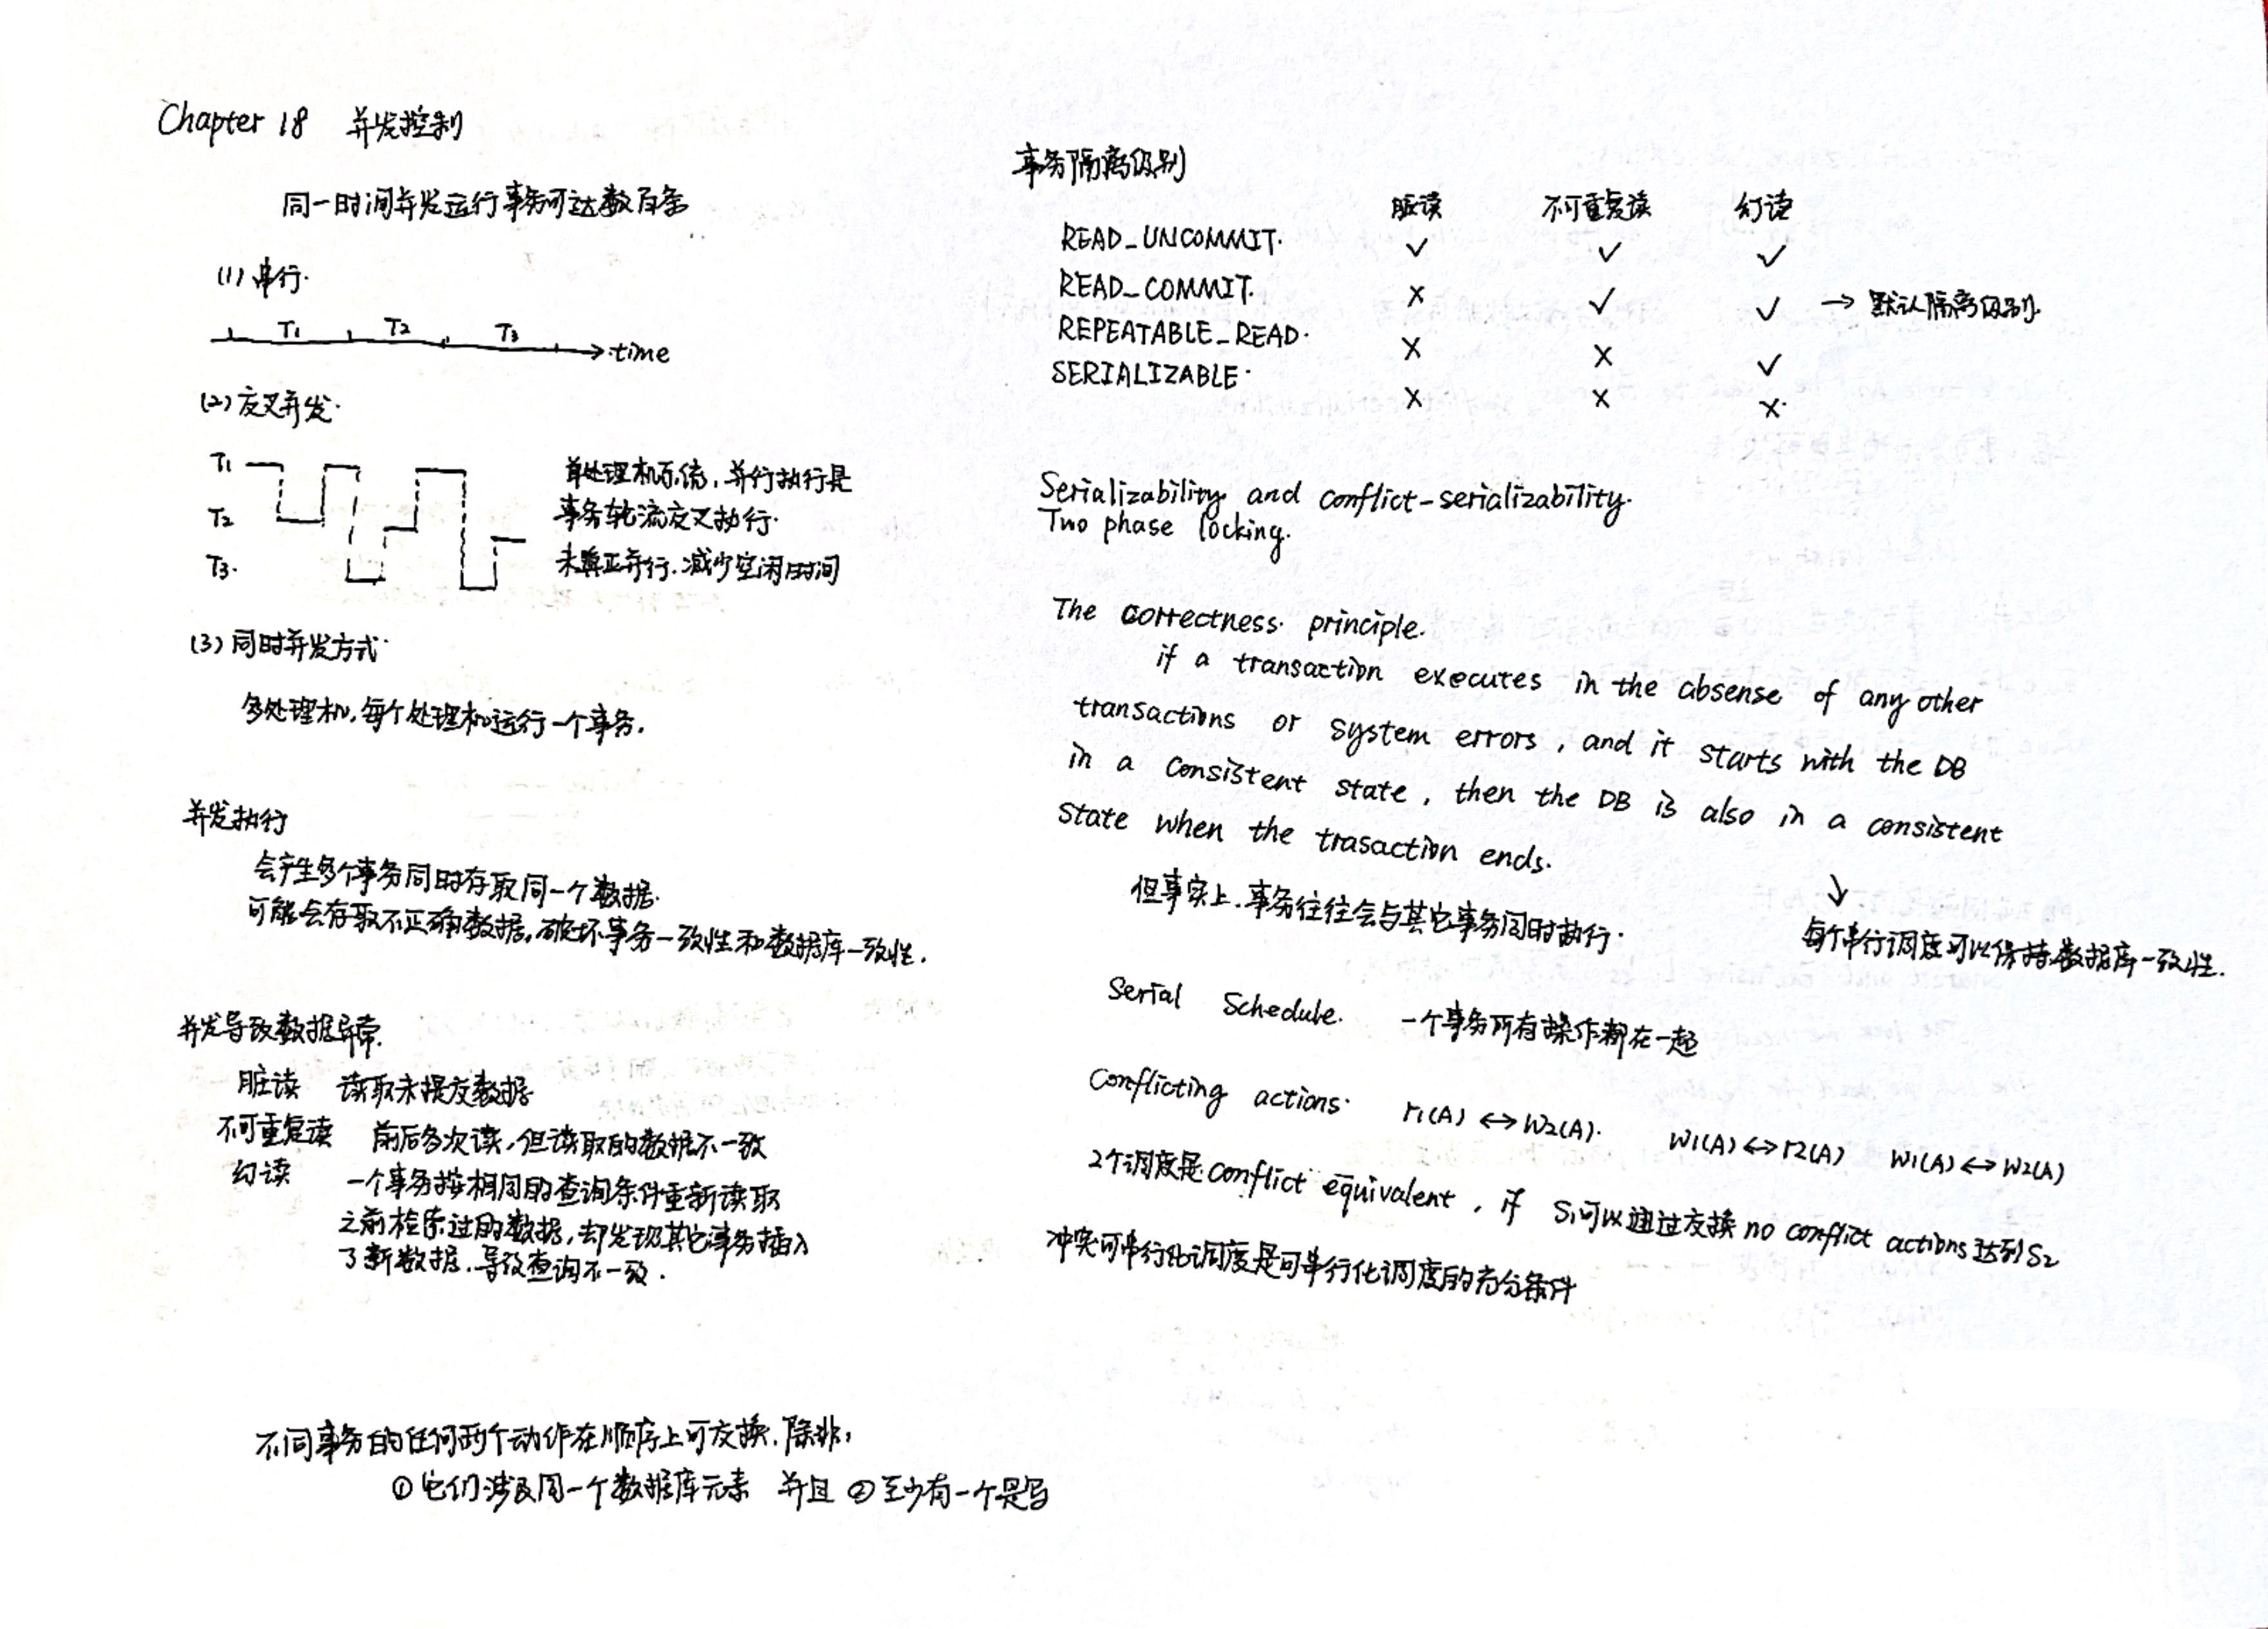 Chapter 18 并发控制
同一时间并发运行事务可达数百条
(1) 串行.
T1 T2 T3 time
(2) 交叉并发.
T1
T2
T3.
单处理机系统, 并行执行是
事务轮流交叉执行.
未真正并行. 减少空闲时间
(3) 同时并发方式
多处理机, 每个处理机运行一个事务.
并发执行
会产生多个事务同时存取同一个数据.
可能会存取不正确数据, 破坏事务一致性和数据库一致性.
并发导致数据异常.
脏读 读取未提交数据
不可重复读 前后多次读, 但读取的数据不一致
幻读 一个事务按相同的查询条件重新读取
之前检索过的数据, 却发现其它事务插入
了新数据, 导致查询不一致.
不同事务的任何两个动作在顺序上可交换. 除非:
① 它们涉及同一个数据库元素 并且 ② 至少有一个是写
事务隔离级别
脏读 不可重复读 幻读
READ_UNCOMMIT. ✓ ✓ ✓
READ_COMMIT. × ✓ ✓ → 默认隔离级别.
REPEATABLE_READ. × × ✓
SERIALIZABLE. × × ×
Serializability and conflict-serializability.
Two phase locking.
The correctness principle.
if a transaction executes in the absense of any other
transactions or system errors, and it starts with the DB
in a consistent state, then the DB is also in a consistent
state when the trasaction ends.
↓
但事实上. 事务往往会与其它事务同时执行.
每个串行调度可以保持数据库一致性.
Serial Schedule. 一个事务所有操作都在一起
Conflicting actions. r1(A) ↔ W2(A). W1(A) ↔ r2(A) W1(A) ↔ W2(A)
2个调度是 conflict equivalent, if S1可以通过交换 no conflict actions 达到S2
冲突可串行化调度是可串行化调度的充分条件